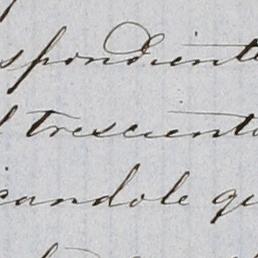 spondiente
trescient
candole qu